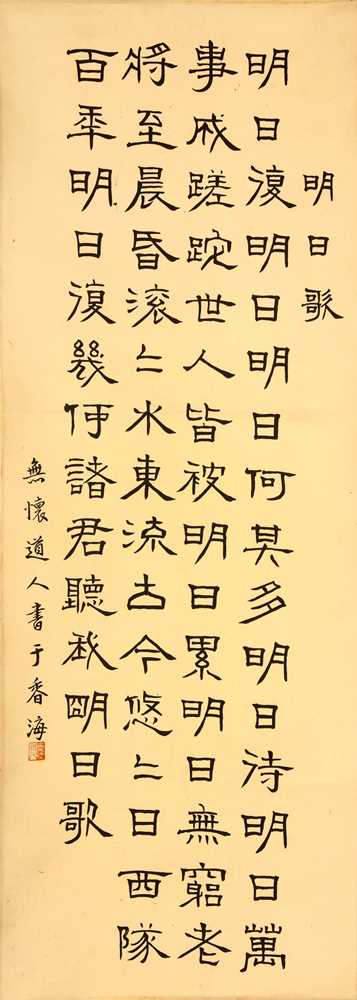 明日歌
明日復明日明日何其多明日待明日萬
事成蹉跎世人皆被明日累明日無窮老
將至晨昏滾〻水東流古今悠〻日西隊
百年明日復幾何諸君聽我朙日歌
無懷道人書于香海